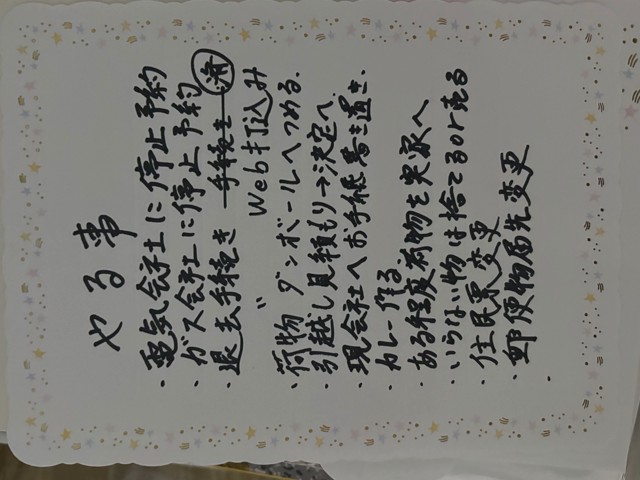 やる事
・電気会社に停止予約
・ガス会社に停止予約
・退去手続き 手続き 済
Web打込み
〃
・荷物 ダンボールへつめる、
・引越し見積もり→決定へ
・現会社へお手紙 書き置き、
・カレー作る
・ある程度荷物を実家へ
・いらない物は捨てるor売る
・住民票変更
・郵便物届先変更
・